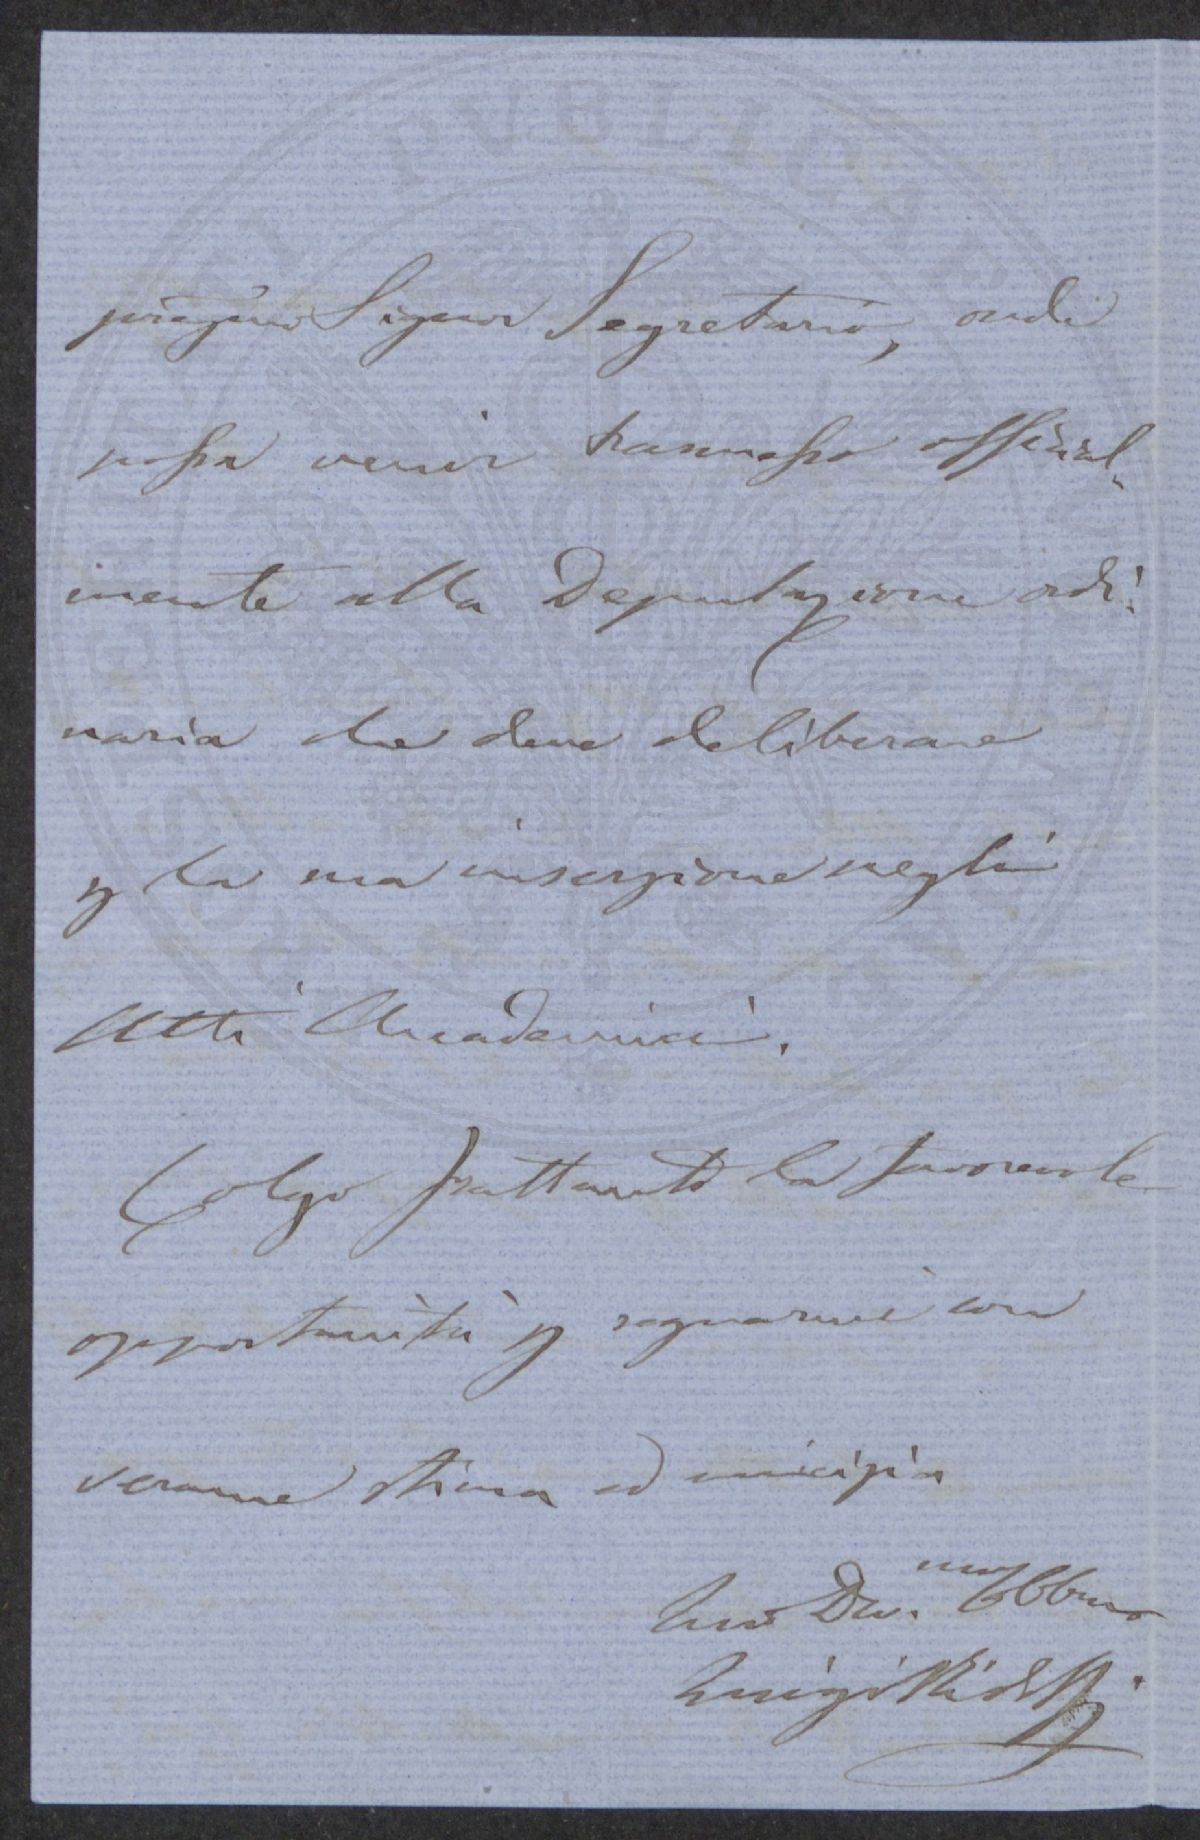 pregmo Signor Segretario, onde
possa venir trasmesso official„
mente alla Deputazione ordi„
naria che deve deliberare
p la sua inserzione negli
Atti Accademici.
Colgo frattanto la favorevole
opportunità p segnarmi con
verace stima ed amicizia
Suo Dev. mo Obbmo
Luigi